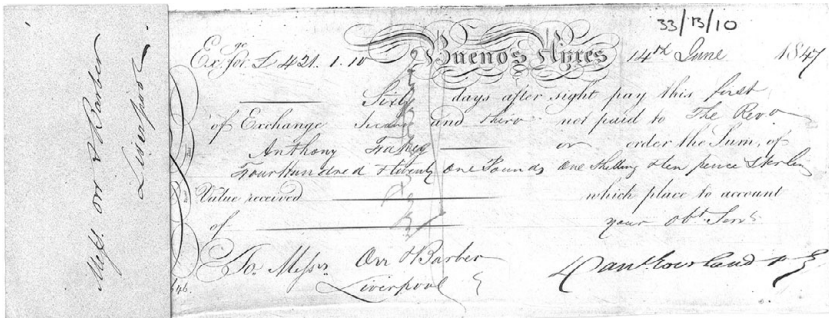 33/13/10
Mess. Orr & Barber
Liverpool.
Exge for £ 421.1.10 Buenos Ayres 14th June 1847
Sixty days after sight pay this first
of Exchange Second and third not paid to The Revd
Anthony Fahey or order the Sum, of
Four hundred & twenty One Pounds One Shilling & ten pence Sterling
Value received which place to account
of your Obt Servts
To. Messrs Orr & Barber
Liverpool